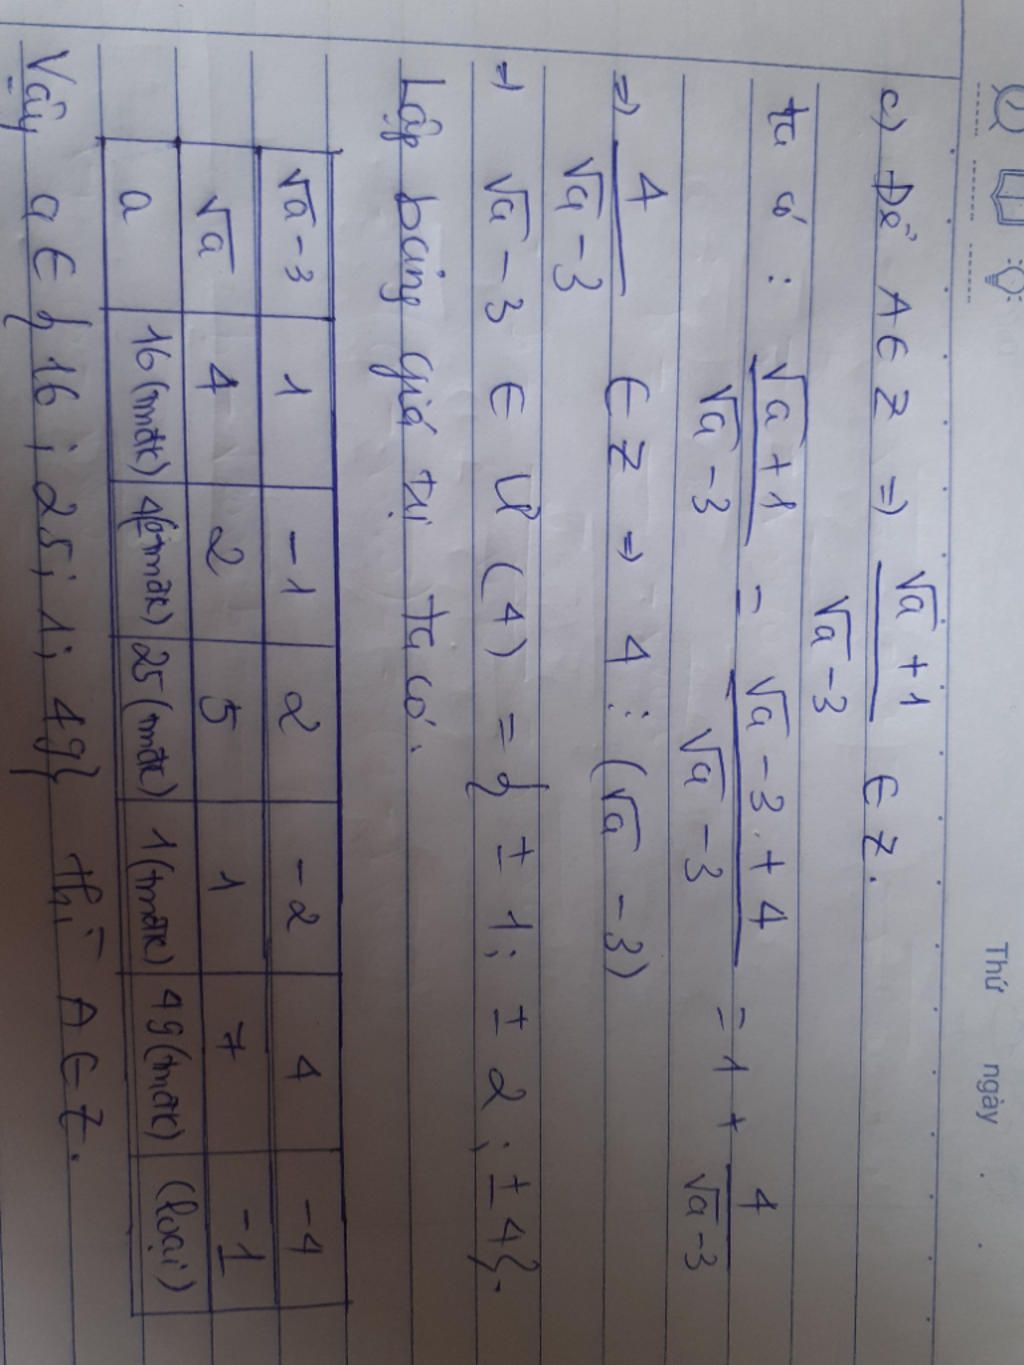 Thứ ngày
c) Để A ∈ Z ⇒ √a + 1 / √a - 3 ∈ Z.
ta có : √a + 1 / √a - 3 = √a - 3 + 4 / √a - 3 = 1 + 4 / √a - 3
⇒ 4 / √a - 3 ∈ Z ⇒ 4 ⋮ (√a - 3)
⇒ √a - 3 ∈ Ư (4) = { ± 1; ± 2; ± 4}.
Lập bảng giá trị ta có.
√a - 3 | 1 | -1 | 2 | -2 | 4 | -4
√a | 4 | 2 | 5 | 1 | 7 | -1
a | 16 (tmđk) | 4 | 25 (tmđk) | 1 (tmđk) | 49 (tmđk) | (loại)
Vậy a ∈ { 16 ; 25; 1; 49} thì A ∈ Z.